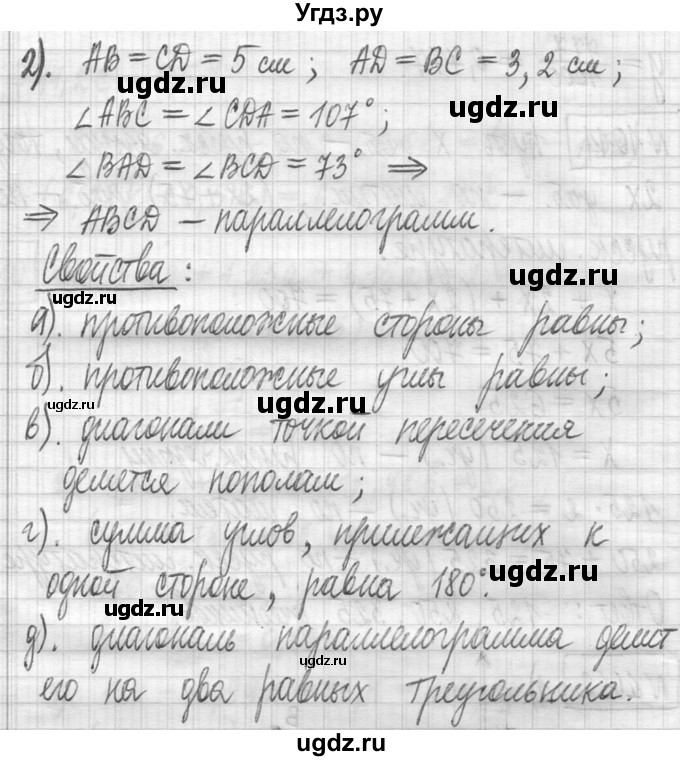 Угдз.ру
2). AB = CD = 5 см ; AD = BC = 3, 2 см ;
∠ABC = ∠CDA = 107° ;
∠BAD = ∠BCD = 73° ⇒
⇒ ABCD – параллелограмм.
Свойства :
а). противоположные стороны равны ;
б). противоположные углы равны ;
в). диагонали точкой пересечения
делятся пополам ;
г). сумма углов, прилежащих к
одной стороне, равна 180°.
д). диагональ параллелограмма делит
его на два равных треугольника.
ugdz.ru
ugdz.ru
ugdz.ru
ugdz.ru
ugdz.ru
ugdz.ru
ugdz.ru
ugdz.ru
ugdz.ru
ugdz.ru
ugdz.ru
ugdz.ru